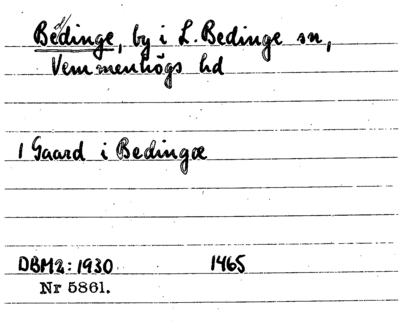 Bedinge, by i L. Bedinge sn,
Vemmenhögs hd
1 Gaard i Bedingæ
DBM2: 1930 1465
Nr 5861.